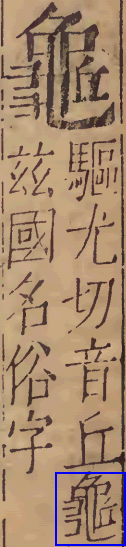 龜
驅尤切音丘龜
茲國名俗字